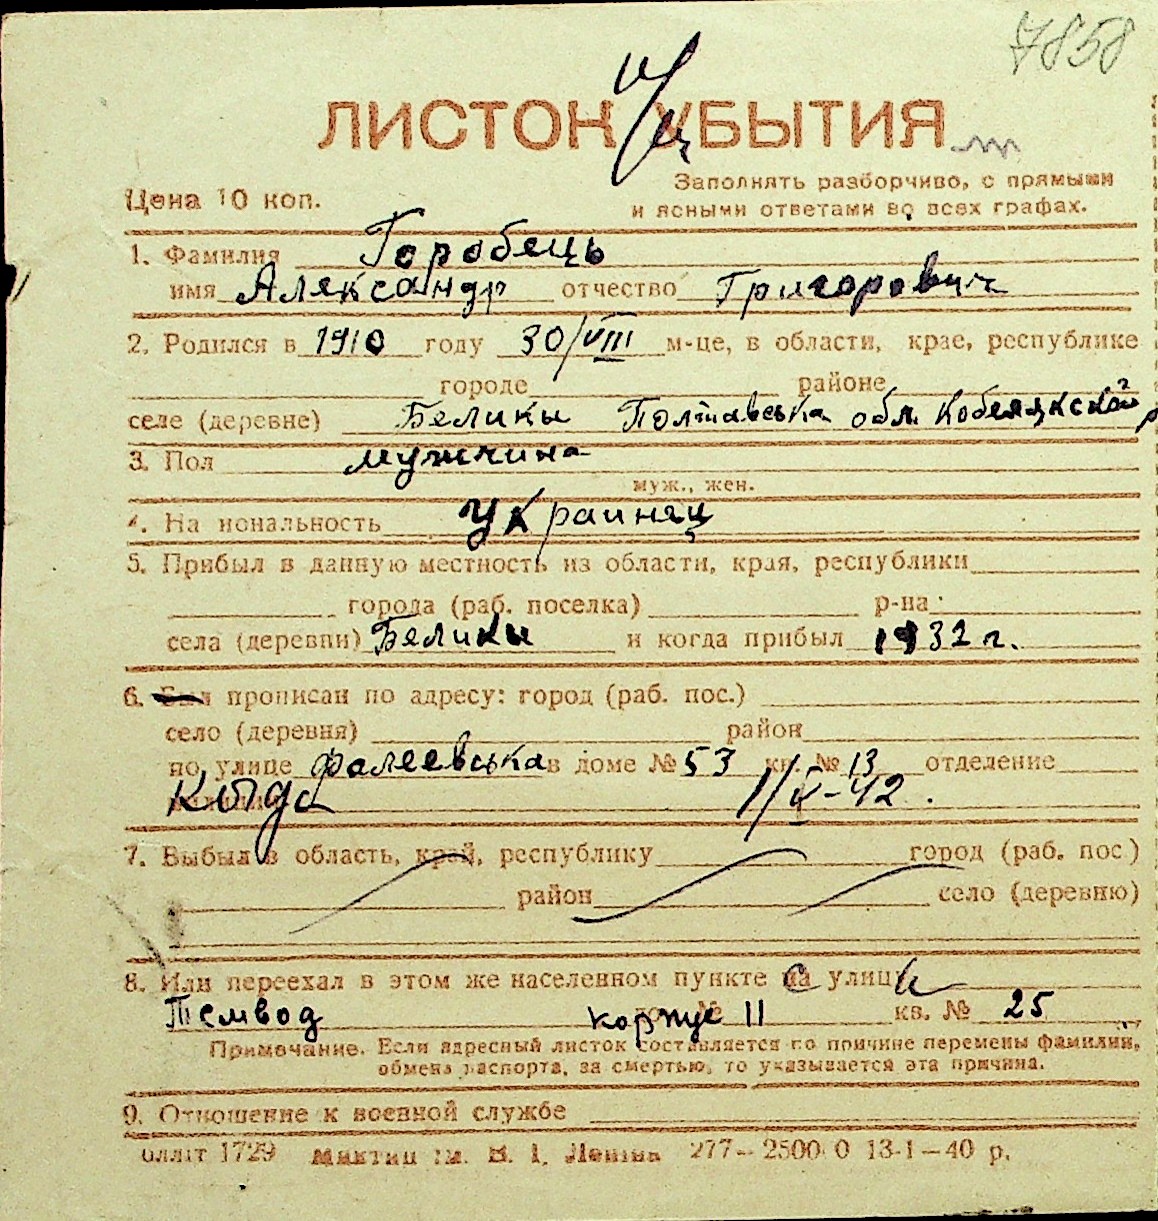 7858
ЛИСТОК УБЫТИЯ
Цена 10 коп.
Заполнять разборчиво, с прямыми
и ясными ответами во всех графах.
1. Фамилия Горобець
имя Александр отчество Григорович
2. Родился в 1910 году 30/VIII м-це, в области, крае, республике
городе районе
селе (деревне) Белики Полтавська обл. Кобеляжской р
3. Пол мужчина
муж., жен.
4. На иональность украинец
5. Прибыл в данную местность из области, края, республики
города (раб. поселка) р-на
села (деревни) Белики и когда прибыл 1932 г.
6. Был прописан по адресу: город (раб. пос.)
село (деревня) район
по улице Фалеевська в доме № 53 кв. № 13 отделение
Когда 1/V-42.
7. Выбыл в область, край, республику город (раб. пос.)
район село (деревню)
8. Или переехал в этом же населенном пункте с улицы
Темвод корпус 11 кв. № 25
Примечание. Если адресный листок составляется по причине перемены фамилии,
обмена паспорта, за смертью, то указывается эта причина.
9. Отношение к военной службе
1729 ім. В. І. Леніна 277—2500 0 13-1—40 р.